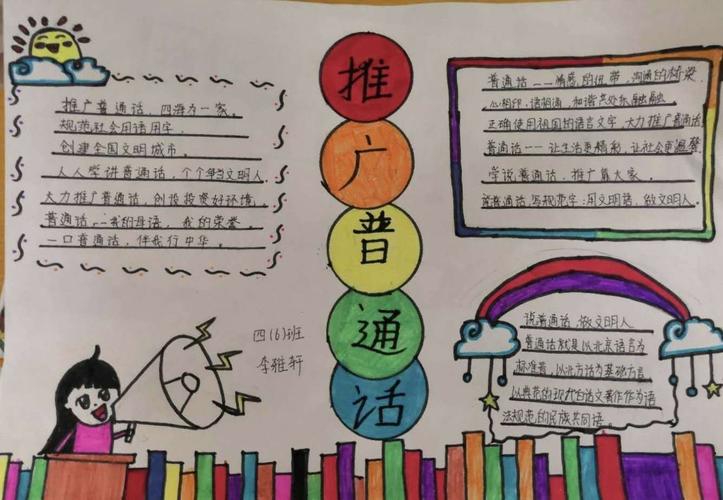 推广普通话
推广普通话，四海为一家。
规范社会用语用字
创建全国文明城市。
人人学讲普通话，个个争当文明人
大力推广普通话，创设投资好环境。
普通话——我的母语，我的荣誉
一口普通话，伴我行中华。
普通话——情感的纽带，沟通的桥梁
心相印，语相通，和谐共处乐融融
正确使用祖国的语言文字，大力推广普通话
普通话——让生活更精彩，让社会更温馨
学说普通话，推广靠大家。
普通话，写规范字；用文明语，做文明人。
四(6)班
李雅轩
说普通话，做文明人
普通话就是以北京语言为
标准音，以北方话为基础方言
以典范的现代白话文著作作为语
法规范的民族共同语。